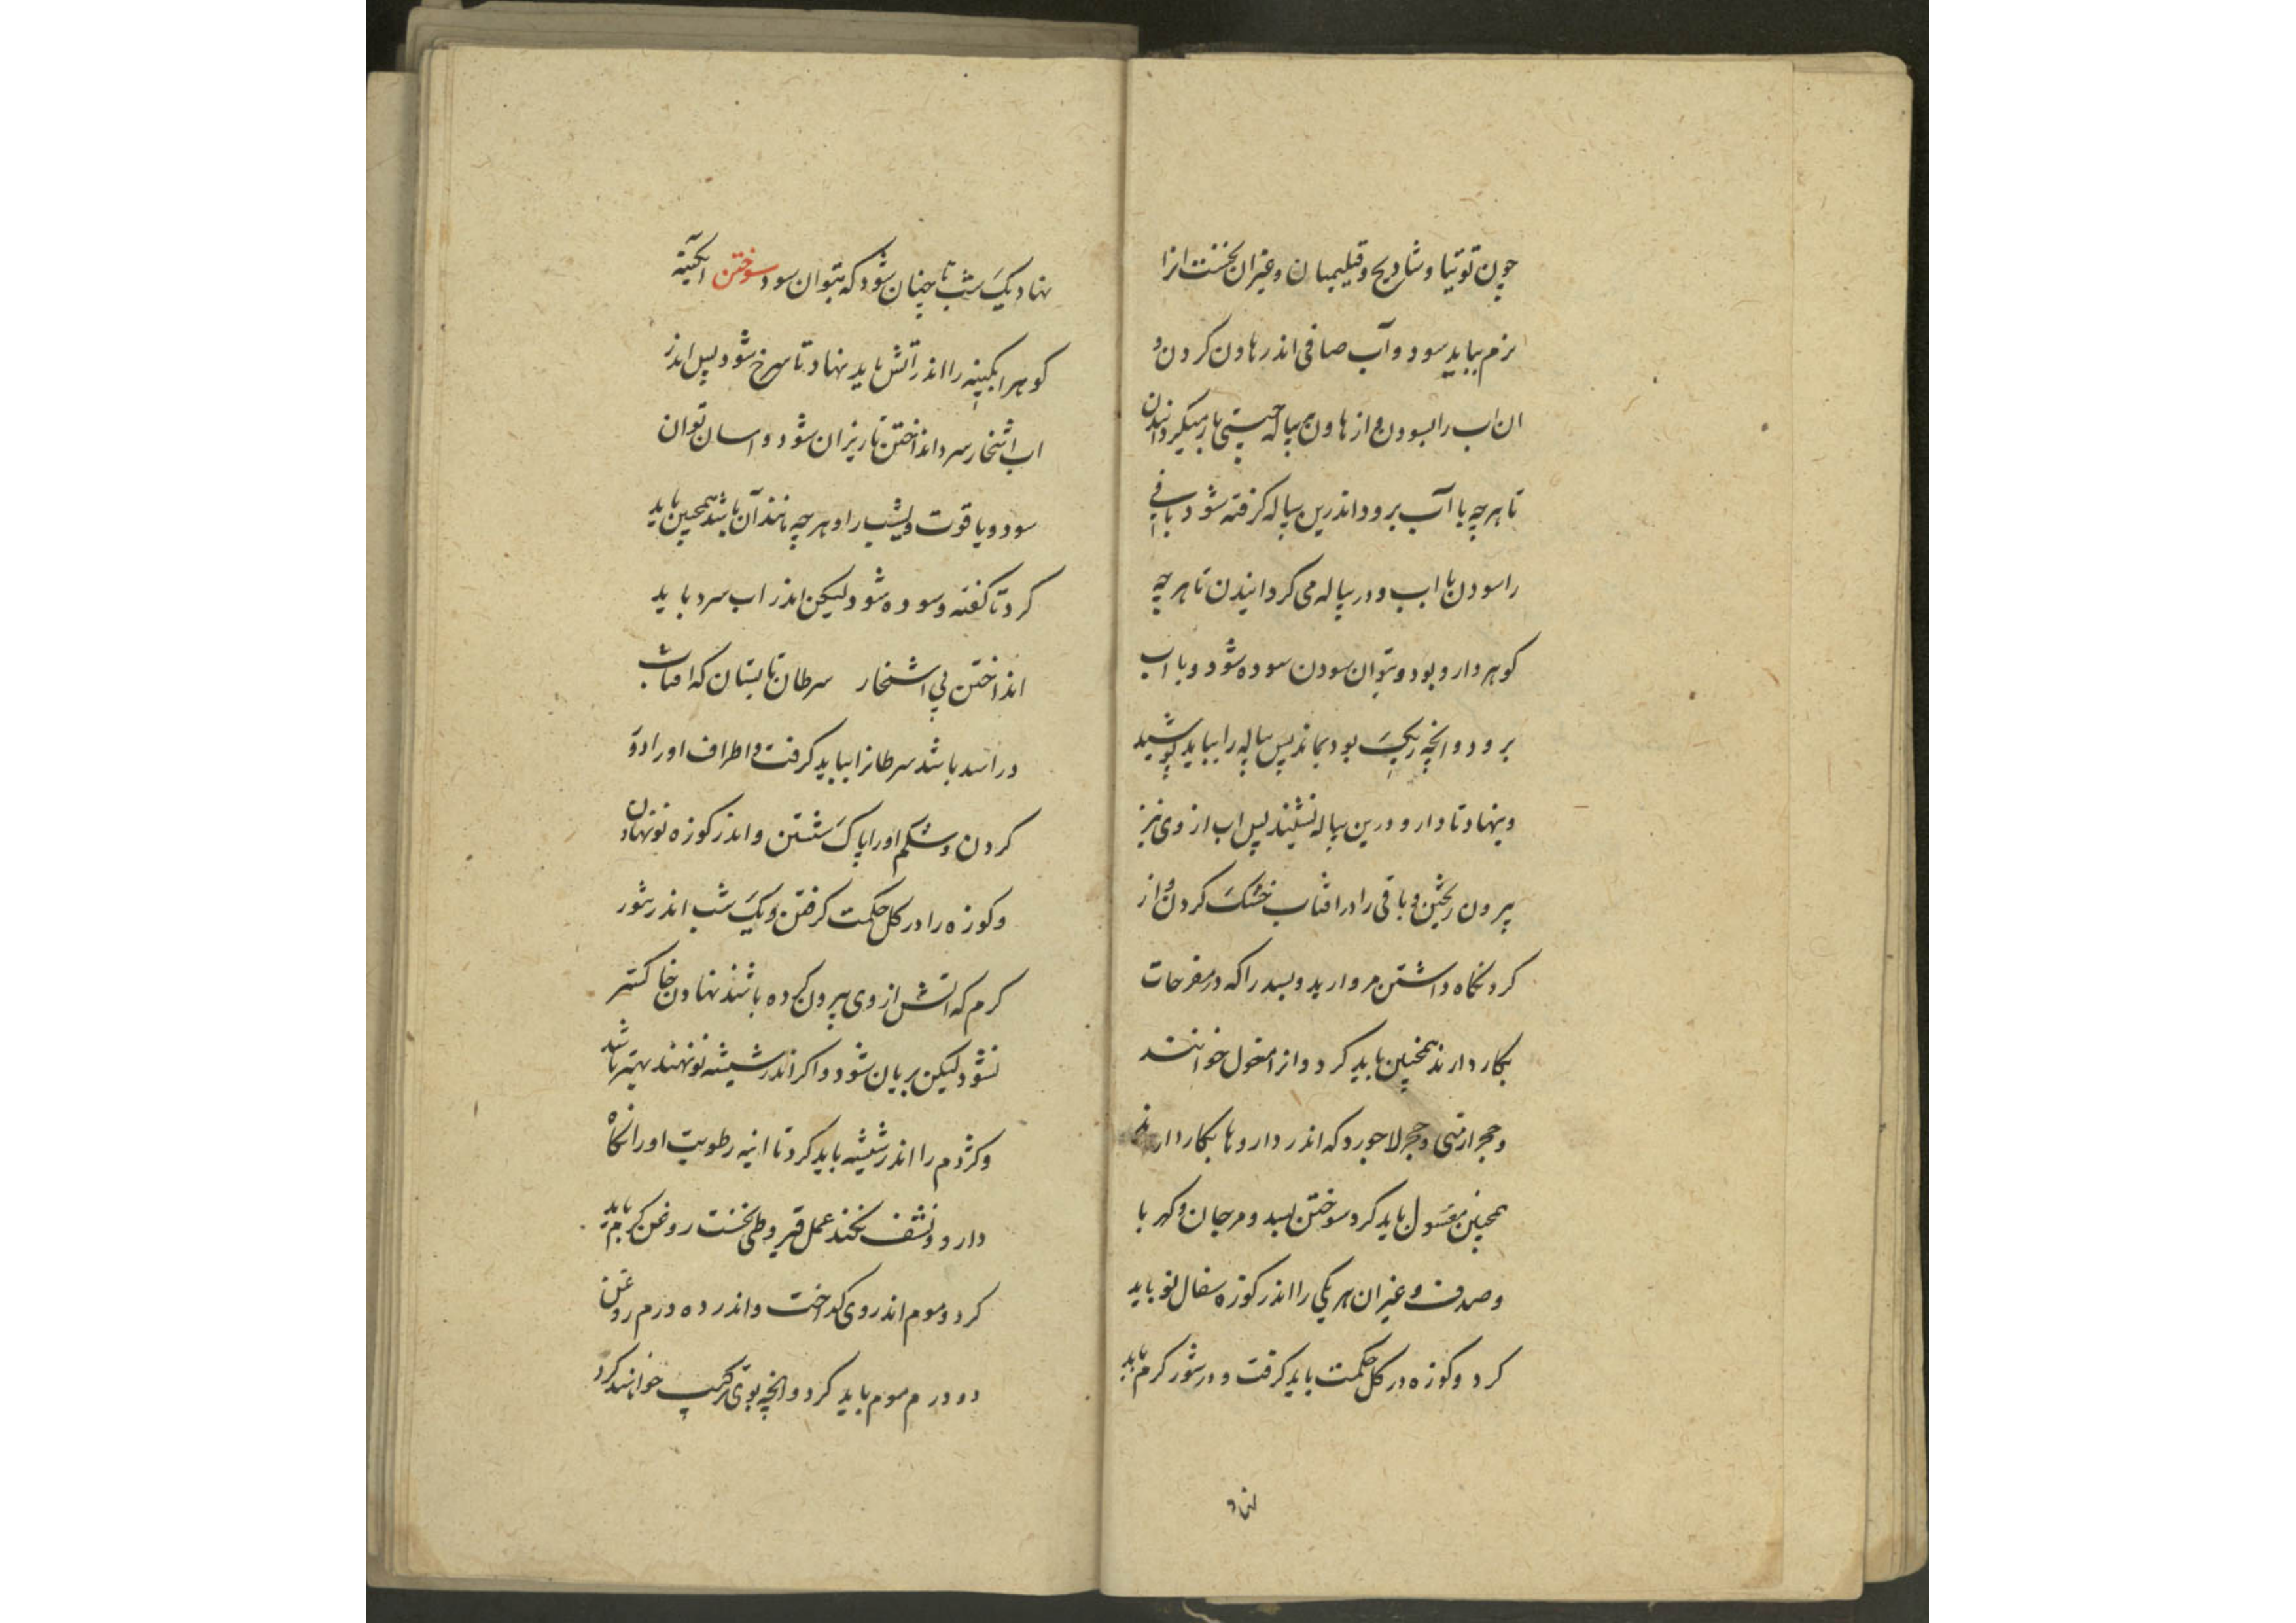 چون توتیا و شادیج و قلیمیان و غیر ان نخست انرا
نرم بباید سود و آب صافی اندر هاون کردن و
ان اب را بسودن و از هاون بپیاله چینی باز میگردانیدن
تا هرچه با آب برود اندرین پیاله گرفته شود باقی
را سودن با اب و در پیاله می کردانیدن تا هرچه
کوهر دارو بود و بتوان سودن سوده شود و با اب
برود و انچه ریک بود بماند پس پیاله را بباید پوشید
و بنهاد تا دارو درین پیاله نشیند پس اب از وی نیز
بیرون ریختن و باقی را در افتاب خشک کردن و از
کرد نکاه داشتن مروارید و بسد را که در مفرحات
بکار دارند همچنین باید کرد و انرا مغول خوانند
و حجر ارمنی و حجر لاجورد که اندر داروها بکار دارند
همچنین مغسول باید کرد سوختن بسد و مرجان و کهربا
و صدف و غیر ان هر یکی را اندر کوزه سفال نو باید
کرد و کوزه در کل حکمت باید کرفت و در تنور کرم باید
نهاد یک شب تا چنان شود که بتوان سود سوختن ابکینه
کوهر ابکینه را اندر آتش باید نهاد تا سرخ شود پس اندر
اب اشخار سرد انداختن تا ریزان شود و اسان توان
سود و یاقوت و یشب را و هرچه مانند آن باشد همچنین باید
کرد تا کفته و سوده شود لیکن اندر اب سرد باید
انداختن بی اشخار سرطان تابستان که افتاب
در اسد باشد سرطانرا بباید کرفت و اطراف او را دور
کردن و شکم او را پاک شستن و اندر کوزه نو نهادن
و کوزه را در کل حکمت کرفتن و یک شب اندر تنور
کرم که اتش از وی بیرون کرده باشند نهادن خاکستر
نشود لیکن بریان شود و اکر اندر شیشه نو نهند بهتر باشد
و کژدم را اندر شیشه باید کرد تا انیه رطوبت او را نکاه
دارد و نشف نکند عمل قیروطی نخست روغن کرم باید
کرد و موم اندر وی کداخت و اندر ده درم روغن
دو درم موم باید کرد و انچه بوی ترکیب خوانند کرد